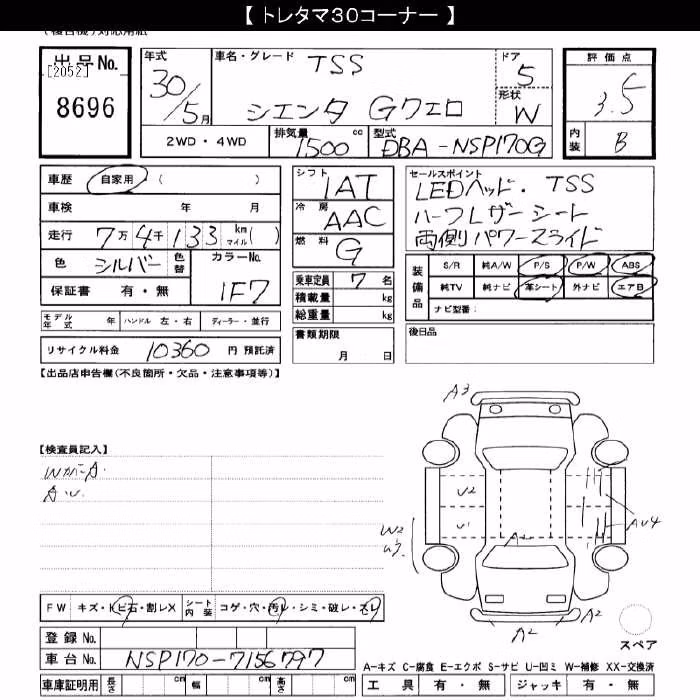 【 トレタマ30コーナー 】
(複合機)対応用紙
出品No.
[2052]
8696
年式
30/5月
車名・グレード
TSS
シエンタ Gクエロ
ドア
5
形状
W
評価点
3.5
内装
B
2WD・4WD
排気量
1500 cc
型式
DBA-NSP170G
車歴 自家用・( )
車検 年 月
走行 7万4千133 km マイル( )
色 シルバー 色替
カラーNo.
1F7
保証書 有・無
モデル年式 年 ハンドル 左・右 ディーラー・並行
リサイクル料金 10360 円 預託済
シフト
1AT
冷房
AAC
燃料
G
乗車定員 7 名
積載量 kg
総重量 kg
書類期限
月 日
セールスポイント
LEDヘッド・TSS
ハーフレザーシート
両側パワースライド
装備品
S/R 純A/W P/S P/W ABS
純TV 純ナビ 革シート 外ナビ エアB
ナビ型番:
後日品
【出品店申告欄(不良箇所・欠品・注意事項等)】
【検査員記入】
A3
U2
U1
W2
AU4
A2
A2
A2
FW キズ・トビ石・割レX シート内装 コゲ・穴・汚レ・シミ・破レ・スレ
登録No.
車台No. NSP170-7156797
車庫証明用 長さ cm 幅 cm 高さ cm
スペア
A-キズ C-腐食 E-エクボ S-サビ U-凹ミ W-補修 XX-交換済
工具 有・無 ジャッキ 有・無